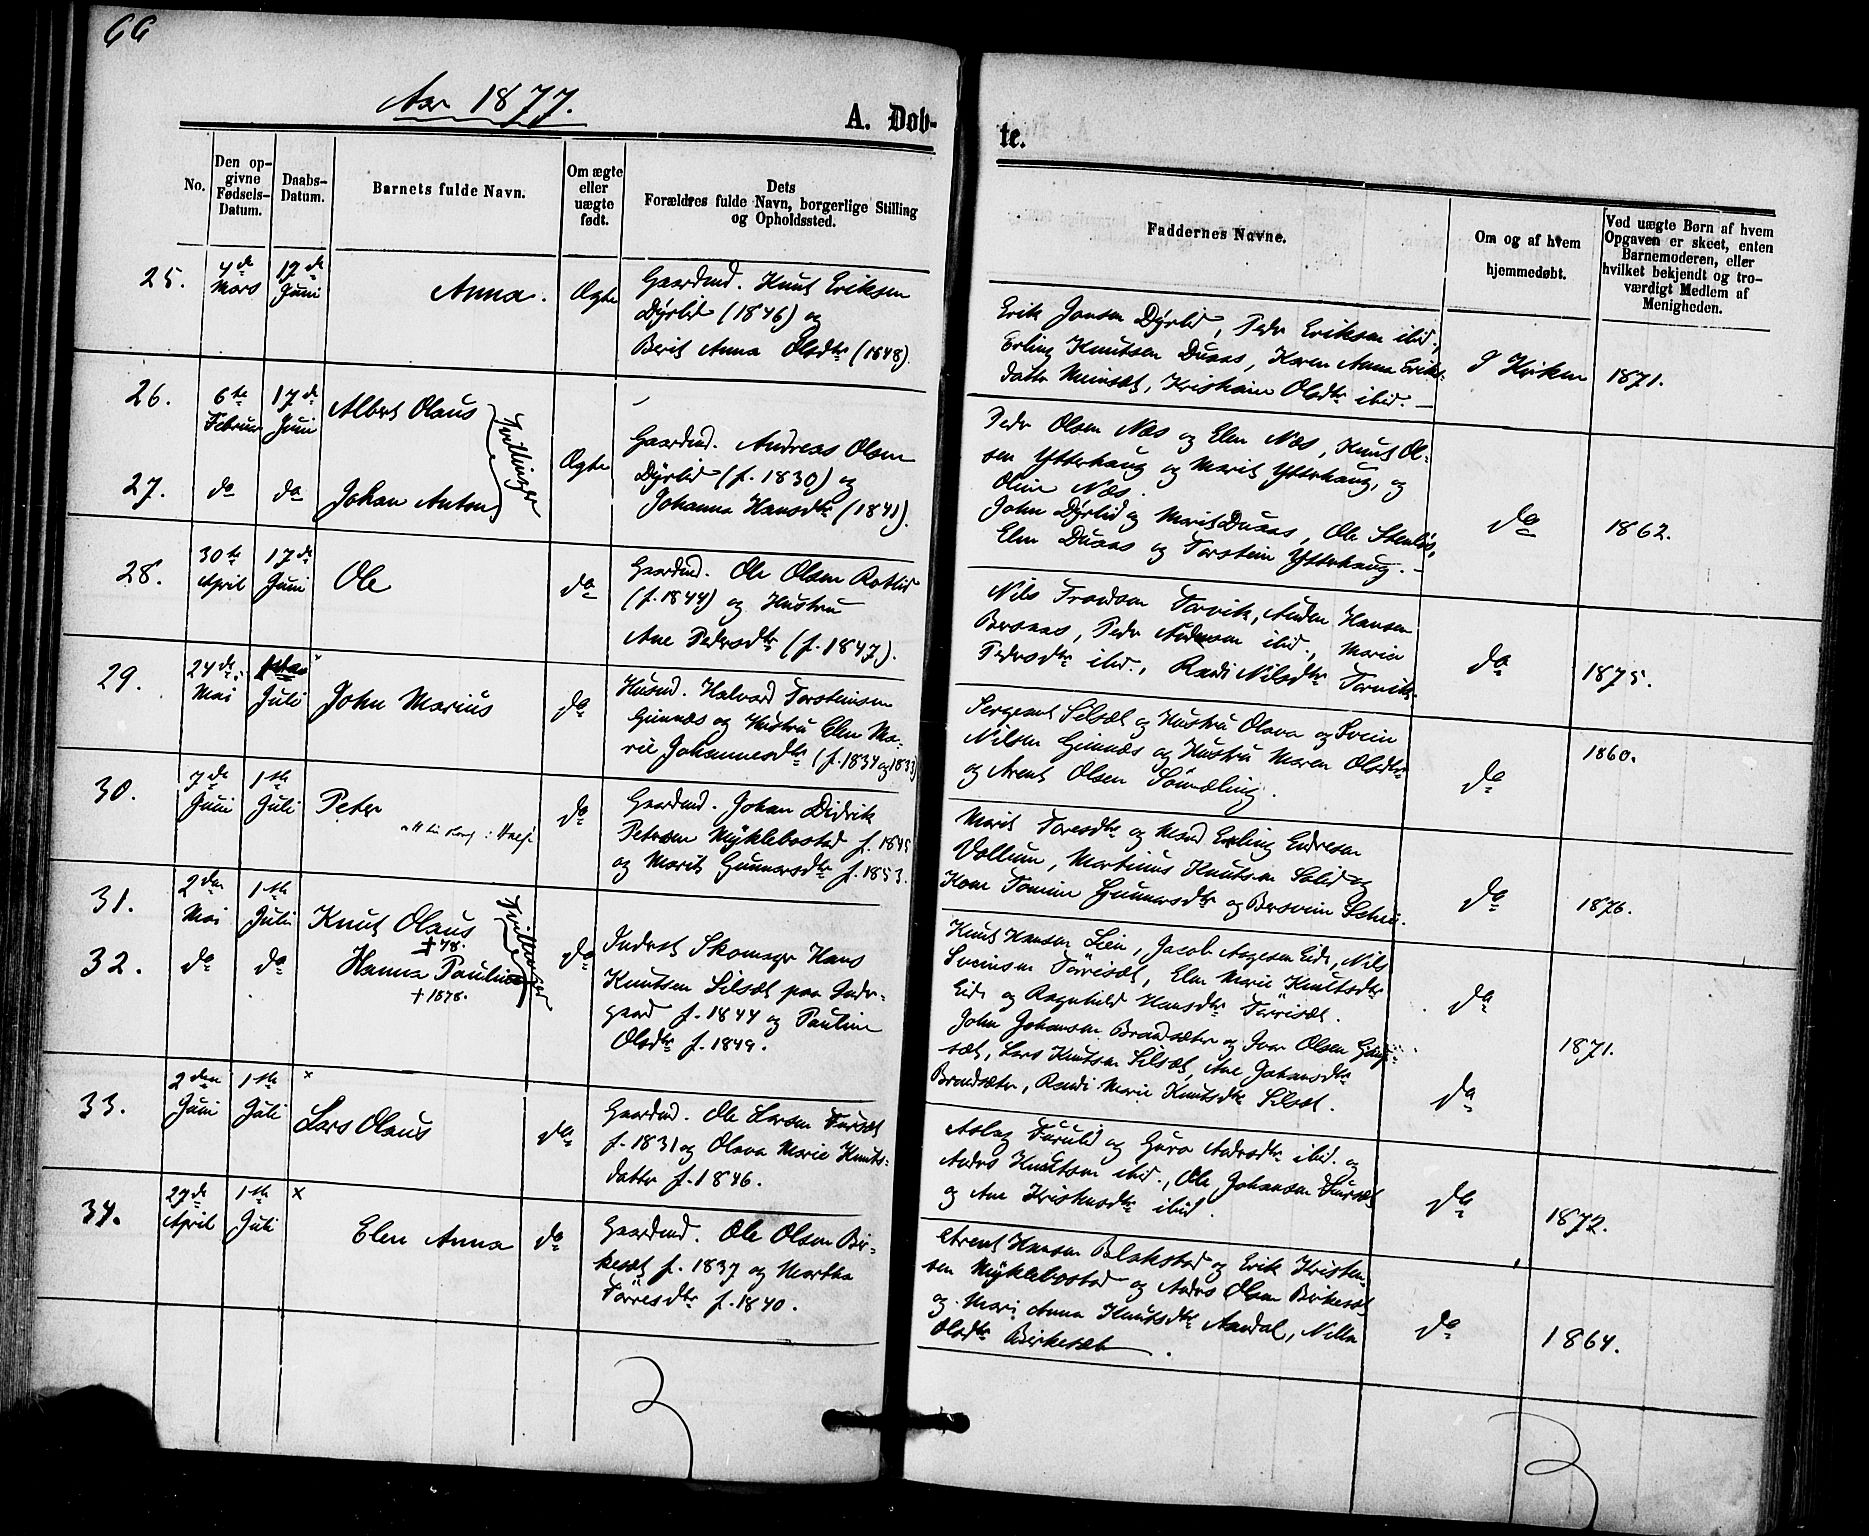 66
Aar 1877.
A. Døb-
te.
No.
Den op-
givne
Fødsels-
Datum.
Daabs-
Datum.
Barnets fulde Navn.
Om ægte
eller
uægte
født.
Dets
Forældres fulde Navn, borgerlige Stilling
og Opholdssted.
Faddernes Navne.
Om og af hvem
hjemmedøbt.
Ved uægte Børn af hvem
Opgaven er skeet, enten
Barnemoderen, eller
hvilket bekjendt og tro-
værdigt Medlem af
Menigheden.
25.
4de Mars
17de Juni
Anna.
Ægte
Gaardmd. Knut Eriksen
Dyrlid (1846) og
Berit Anna Olsdtr (1848).
Erik Jonsen Dyrlid, Peder Eriksen ibid.,
Erling Knutsen Duaas, Karen Anna Eriks-
datter, Kristiane Olsdtr ibid. –
I Kirken
1871.
26.
6te Februar
17de Juni
Albert Olaus
Tvillinger
27.
do
do
Johan Anton
Ægte
Gaardmd. Andreas Olsen
Dyrlid (f. 1830) og
Johanna Hansdtr (1841).
Peder Olsen Næs og Elen Næs, Knut Ol-
sen Ytterhaug og Marit Ytterhaug, og
Oline Næs.
John Dyrlid og Marit Duaas, Ole Stenløs,
Elen Duaas og Torstein Ytterhaug. –
do
1862.
28.
30te April
17de Juni
Ole
do
Gaardmd. Ole Olsen Rødlid
(f. 1844) og Hustru
Ane Pedersdtr (f. 1847).
Nils Trondsen Torvik, Anders Hansen
Bersaas, Peder Andersen ibid., Marie
Pedersdtr ibid., Randi Nilsdtr Torvik.
do
1875.
29.
24de Mai
Juli
John Marius
do
Husmd. Halvard Torsteinsen
Gimnæs og Hustru Elen Ma-
rie Johannesdtr (f. 1834 og 1833)
Sergeant Silsæt og Hustru Olava og Svein
Nilsen Gimnæs og Hustru Maren Olsdtr
og Arent Olsen Sömæling.
do
1860.
30.
7de Juni
1ste Juli
Peter
do
Gaardmd. Johan Didrik
Petersen Myklebostad f. 1845
og Marit Gunnarsdtr f. 1853.
Marit Toresdtr og Mand Erling Endresen
Vollum, Martinus Knutsen Solid og
Kone Gunnarsdtr og Bersvein
do
1876.
31.
2den Mai
1ste Juli
Knut Olaus
† 78.
Tvillinger
32.
do
do
Hanna Pauline
† 1878.
do
Inderst Skomager Hans
Knutsen Silsæt paa Inder-
gaard f. 1844 og Pauline
Olsdtr f. 1849.
Knut Hansen Lien, Jacob Aagesen Eide, Nils
Sveinsen Törrisæt, Elen Marie Knutsdtr
Eide og Ragnhild Hansdtr Törrisæt.
John Johansen Brandsæter og Ivar Olsen
sæt, Lars Knutsen Silsæt, Ane Johansdtr
Brandsæter, Randi Marie Knutsdtr Silsæt.
do
do
1871.
33.
2den Juni
1ste Juli
×
Lars Olaus
do
Gaardmd. Ole Larsen Fursæt
f. 1831 og Olava Marie Knuts-
datter f. 1846.
Aslag Furulid og Guro Andersdtr ibid. og
Anders Knutsen ibid., Ole Johansen Fursæt
og Ane Kristensdtr ibid.
do
1872.
34.
29de April
1ste Juli
×
Elen Anna
do
Gaardmd. Ole Olsen Bir-
kesæt f. 1837 og Martha
Törresdtr f. 1840.
Arent Hansen Blakstad og Erik Kristen-
sen Myklebostad og Anders Olsen Birkesæt
og Mari Anna Knutsdtr Aandal, Nilla
Olsdtr Birkesæt.
do
1864.